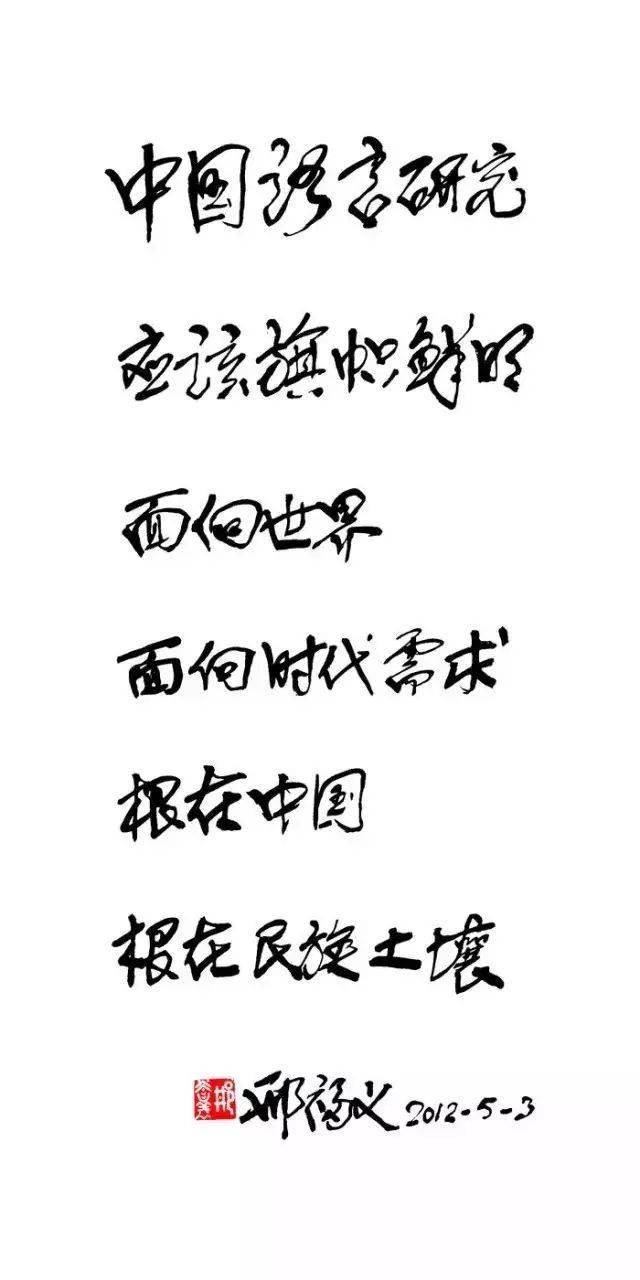 中国语言研究
应该旗帜鲜明
面向世界
面向时代需求
根在中国
根在民族土壤
邢福义 2012-5-3